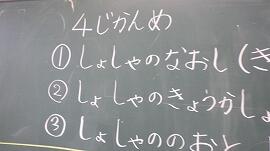 4じかんめ
①しょしゃのなおし(き
②しょしゃのきょうかし
③しょしゃののおと